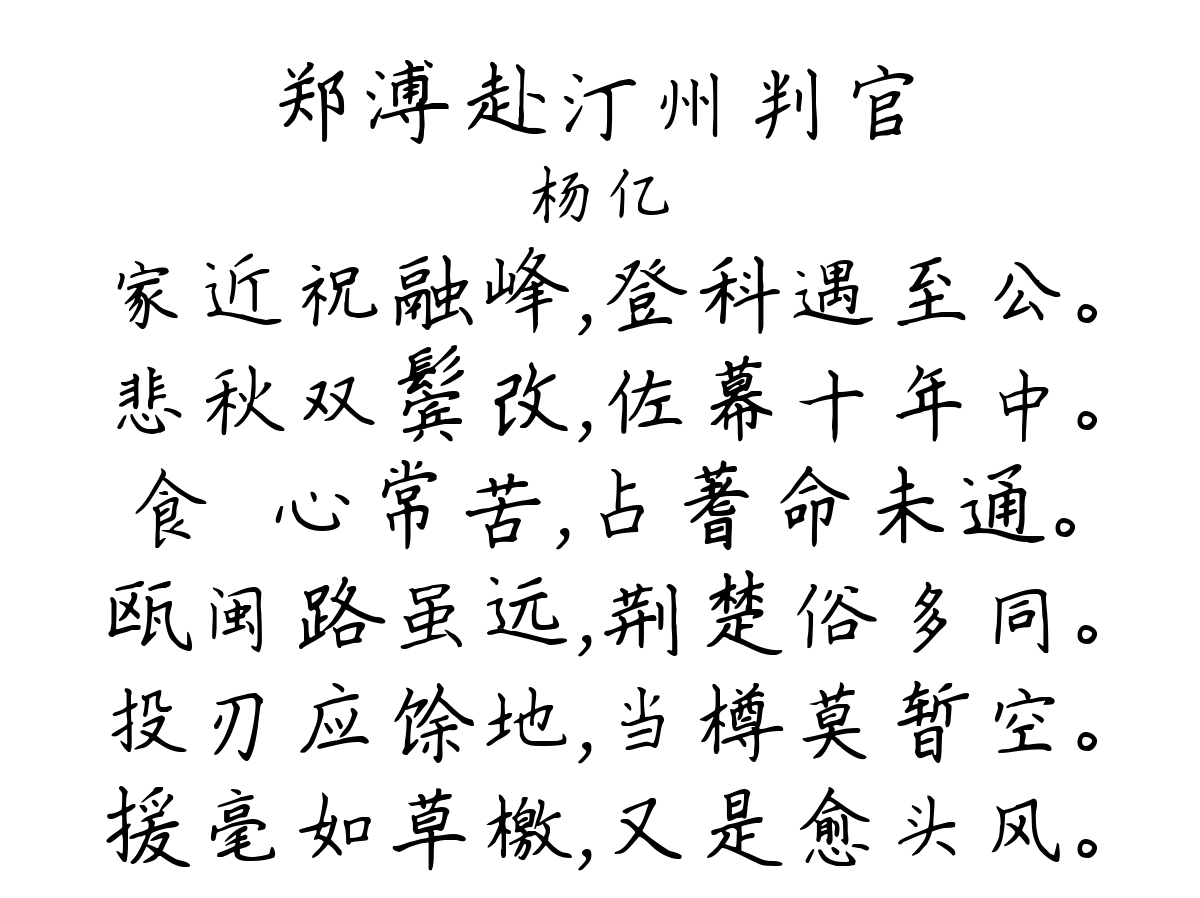 郑溥赴汀州判官
杨亿
家近祝融峰,登科遇至公。
悲秋双鬓改,佐幕十年中。
食 心常苦,占蓍命未通。
瓯闽路虽远,荆楚俗多同。
投刃应馀地,当樽莫暂空。
援毫如草檄,又是愈头风。